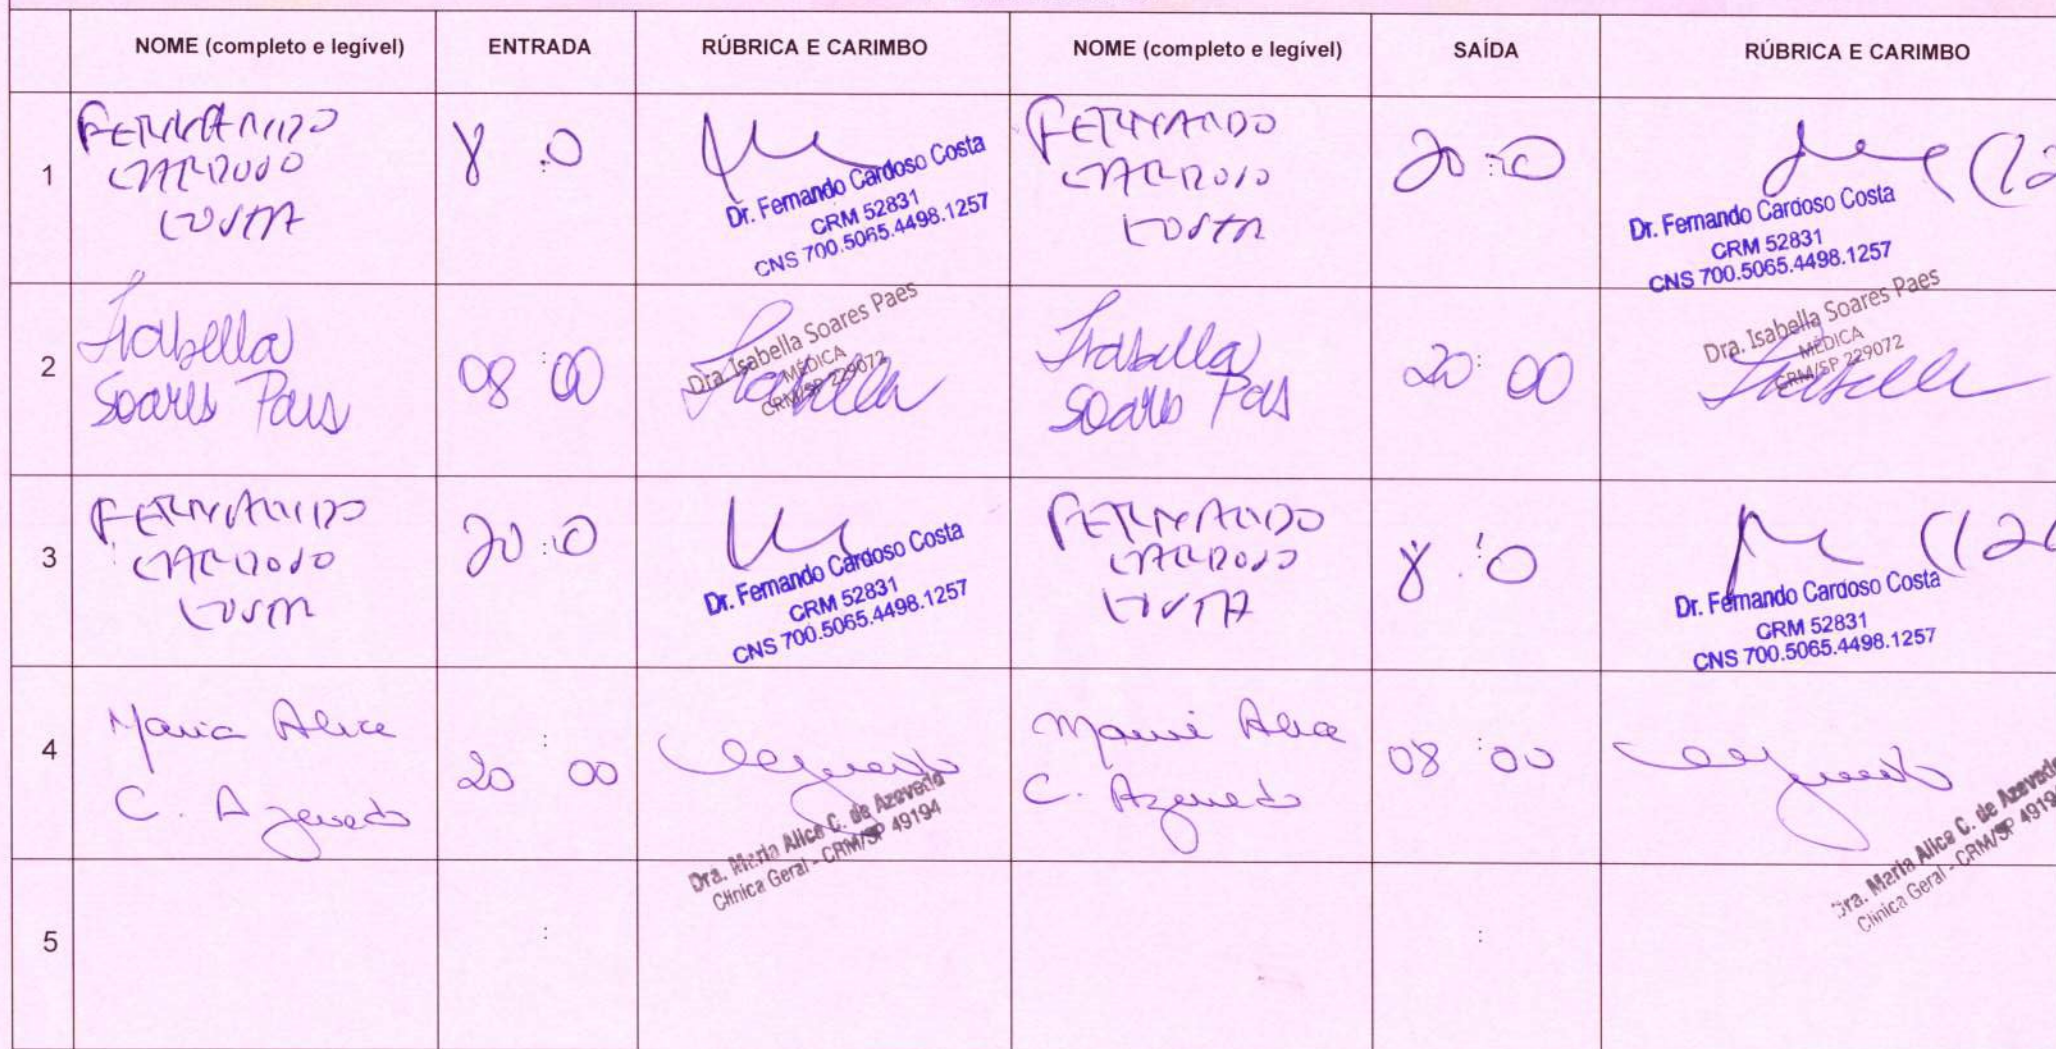 NOME (completo e legível) ENTRADA RÚBRICA E CARIMBO NOME (completo e legível) SAÍDA RÚBRICA E CARIMBO
1
FERNANDO
CARDOSO
COSTA
8 :0
Dr. Fernando Cardoso Costa
CRM 52831
CNS 700.5065.4498.1257
FERNANDO
CARDOSO
COSTA
20:0
(12
Dr. Fernando Cardoso Costa
CRM 52831
CNS 700.5065.4498.1257
2
Isabella
Soares Paes
08:00
Dra. Isabella Soares Paes
MÉDICA
CRM/SP 229072
Isabella
Isabella
Soares Paes
20:00
Dra. Isabella Soares Paes
MÉDICA
CRM/SP 229072
Isabella
3
FERNANDO
CARDOSO
COSTA
20:0
Dr. Fernando Cardoso Costa
CRM 52831
CNS 700.5065.4498.1257
FERNANDO
CARDOSO
COSTA
8:0
(12
Dr. Fernando Cardoso Costa
CRM 52831
CNS 700.5065.4498.1257
4
Maria Alice
C. Azevedo
20:00
Dra. Maria Alice C. de Azevedo
Clínica Geral - CRM/SP 49194
Maria Alice
C. Azevedo
08:00
Dra. Maria Alice C. de Azevedo
Clínica Geral - CRM/SP 4919
5
:
: